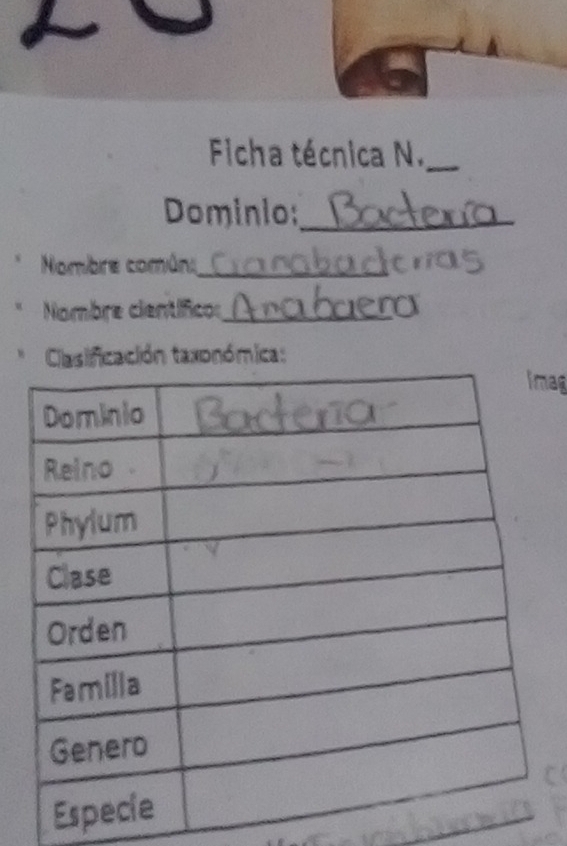 Ficha técnica N.__
Dominio: Bacteria
Nombre común: Cianobacterias
Nombre científico: Anabaena
Clasificación taxonómica:
Imag
Dominio Bacteria
Reino
Phylum
Clase
Orden
Familia
Genero
Especie